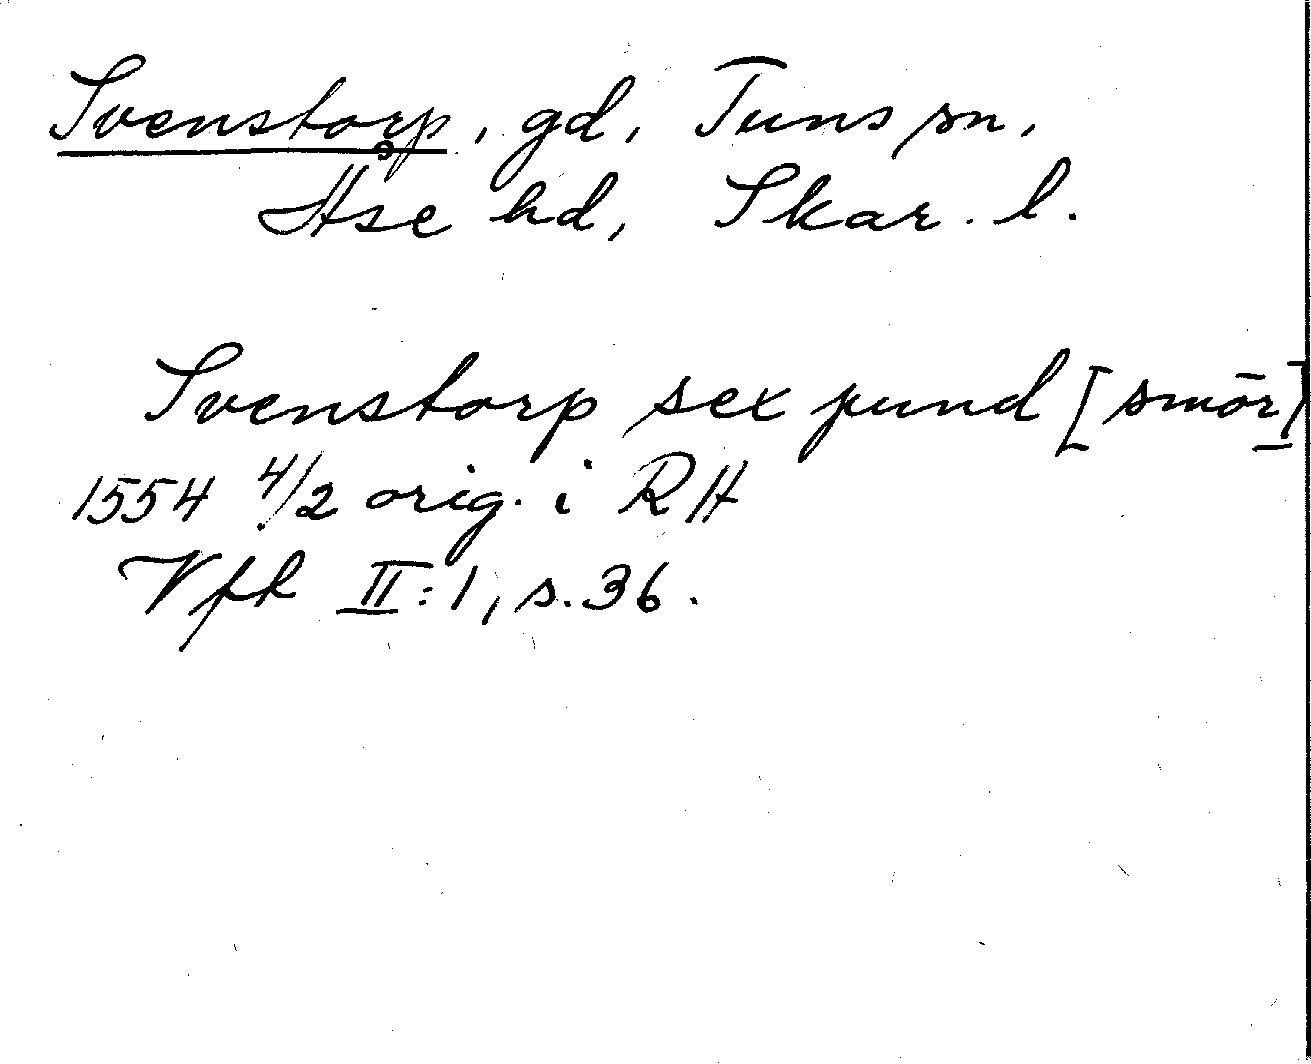 Svenstorp, gd, Tuns sn,
Åse hd, Skar. l.
Svenstorp sex pund [smör]
1554 4/2 orig. i RH
Vfh II:1, s. 36.